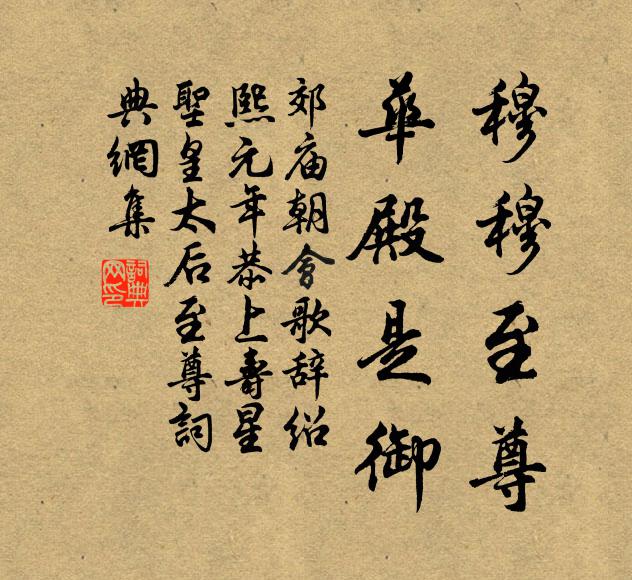 穆穆至尊
華殿是御
郊庙朝會歌辞绍
熙元年恭上壽星
聖皇太后至尊詞
典網集
詞典
网印